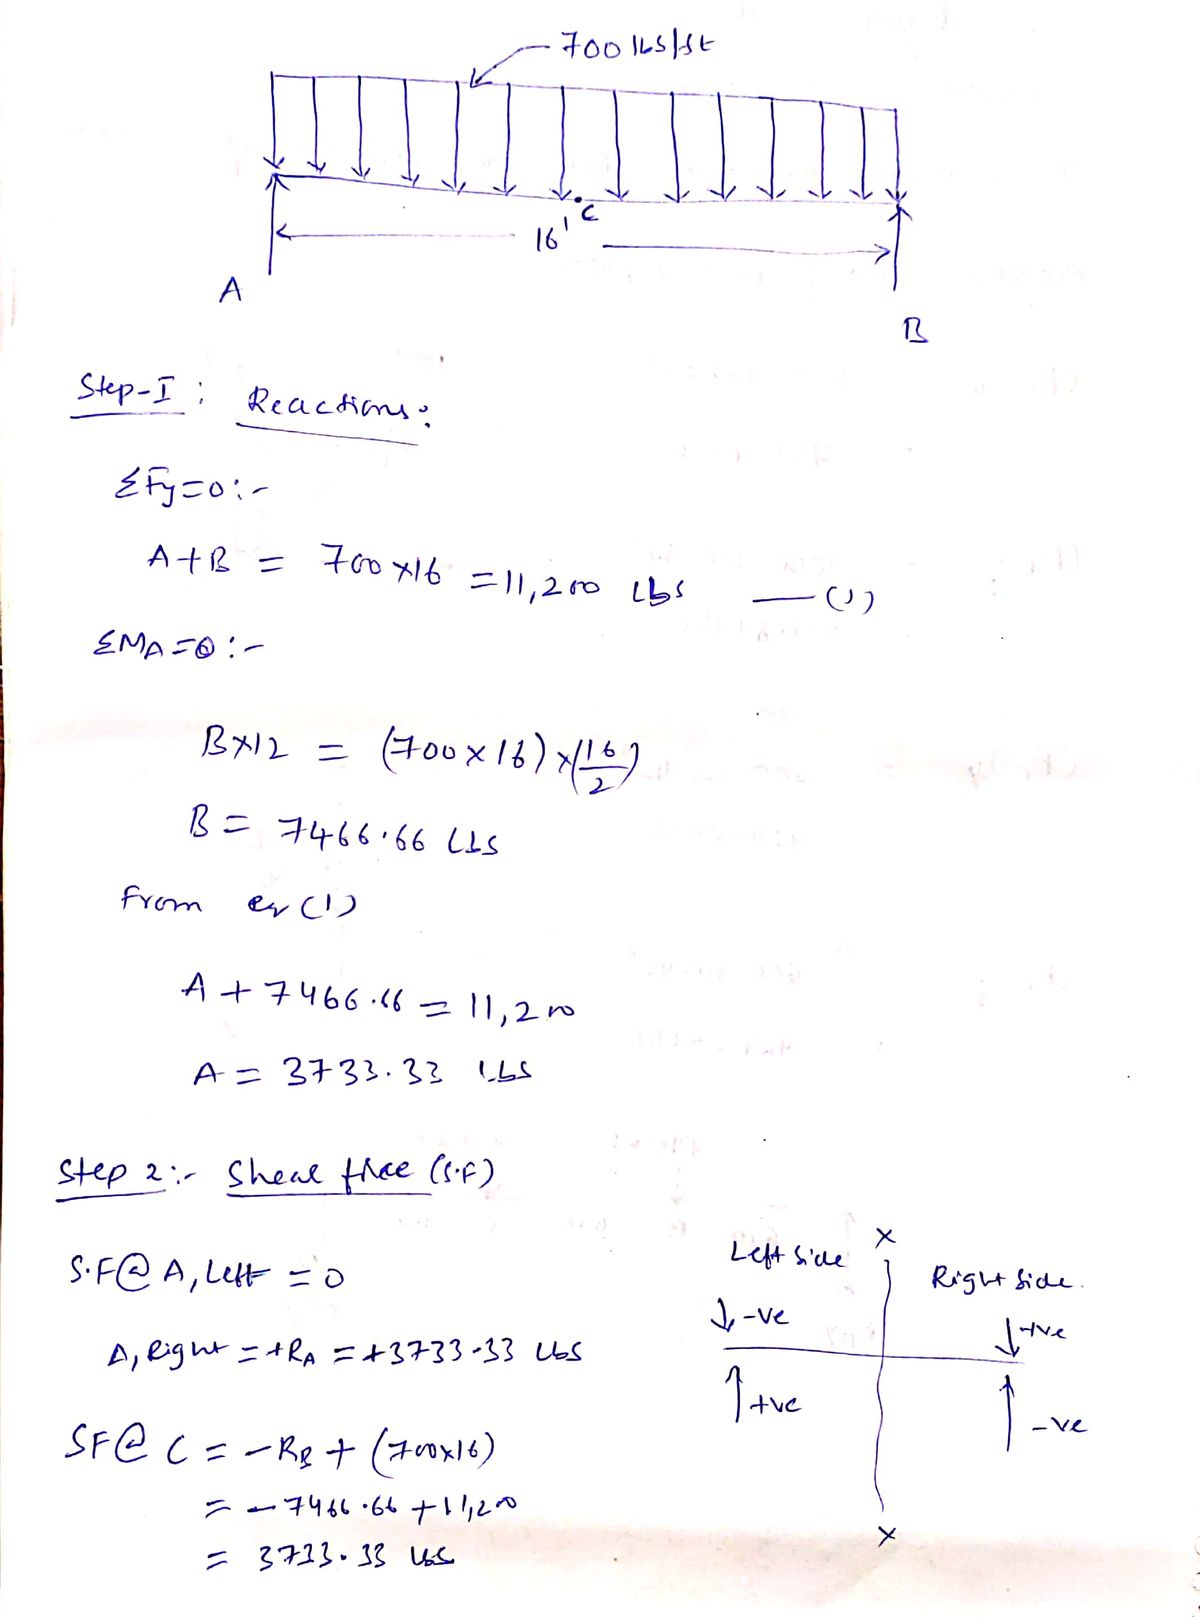 700 lbs/ft
C
16'
A
B
Step-I : Reactions:
ΣFy=0:-
A+B = 700×16 = 11,200 Lbs —(1)
ΣMA=0:-
B×12 = (700×16)×(16/2)
B = 7466.66 Lbs
from eq (1)
A + 7466.66 = 11,200
A = 3733.33 Lbs
Step 2:- Shear force (S.F)
S.F@ A, Left = 0
A, Right = +RA = +3733.33 Lbs
SF@ C = -RB + (700×16)
= -7466.66 + 11,200
= 3733.33 Lbs
X
Left Side
Right Side.
↓ -ve
↓ +ve
↑ +ve
↑ -ve
X